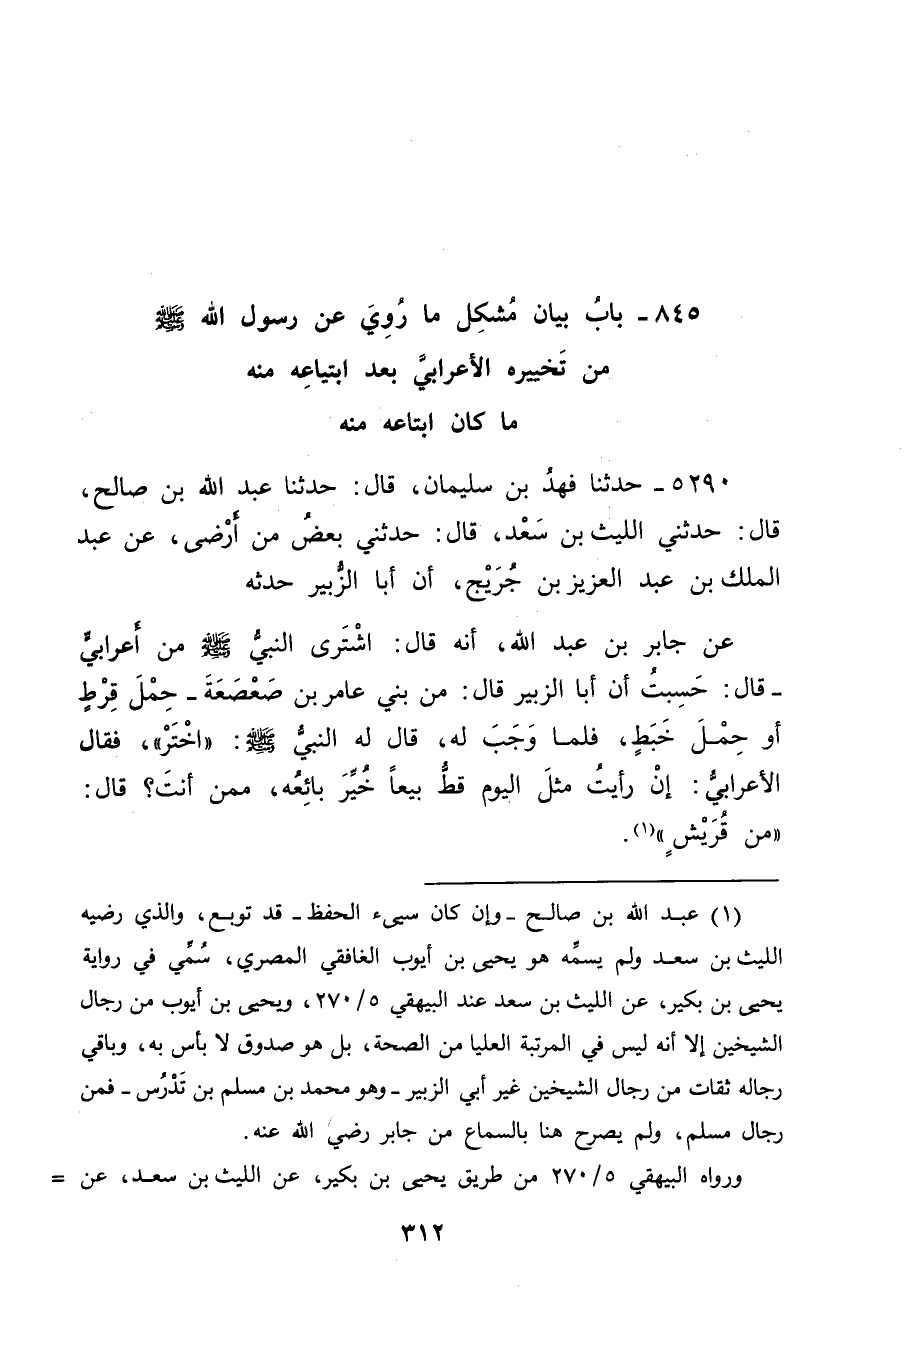 ٨٤٥ ـ بابُ بيان مُشكِل ما رُوِيَ عن رسول الله ﷺ
من تَخييره الأعرابيَّ بعد ابتياعِه منه
ما كان ابتاعه منه
٥٢٩٠ ـ حدثنا فهدُ بن سليمان، قال: حدثنا عبد الله بن صالح،
قال: حدثني الليث بن سَعْد، قال: حدثني بعضُ من أَرْضى، عن عبد
الملك بن عبد العزيز بن جُرَيْج، أن أبا الزُّبير حدثه
عن جابر بن عبد الله، أنه قال: اشْتَرى النبيُّ ﷺ من أَعرابيٍّ
ـ قال: حَسِبتُ أن أبا الزبير قال: من بني عامر بن صَعْصَعَةَ ـ حِمْلَ قِرْطٍ
أو حِمْـلَ خَبَطٍ، فلمـا وَجَبَ له، قال له النبيُّ ﷺ: «اخْتَرْ»، فقال
الأعرابيُّ: إنْ رأيتُ مثلَ اليوم قطُّ بيعاً خُيِّرَ بائِعُه، ممن أنتَ؟ قال:
«من قُرَيْشٍ»(١).
(١) عبـد الله بن صالـح ـ وإن كان سيىء الحفظ ـ قد توبـع، والذي رضيه
الليث بن سعـد ولم يسمِّه هو يحيى بن أيوب الغافقي المصري، سُمِّي في رواية
يحيى بن بكير، عن الليث بن سعد عند البيهقي ٢٧٠/٥، ويحيى بن أيوب من رجال
الشيخين إلا أنه ليس في المرتبة العليا من الصحة، بل هو صدوق لا بأس به، وباقي
رجاله ثقات من رجال الشيخين غير أبي الزبير ـ وهو محمد بن مسلم بن تَدْرُس ـ فمن
رجال مسلم، ولم يصرح هنا بالسماع من جابر رضي الله عنه.
ورواه البيهقي ٢٧٠/٥ من طريق يحيى بن بكير، عن الليث بن سعـد، عن =
٣١٢